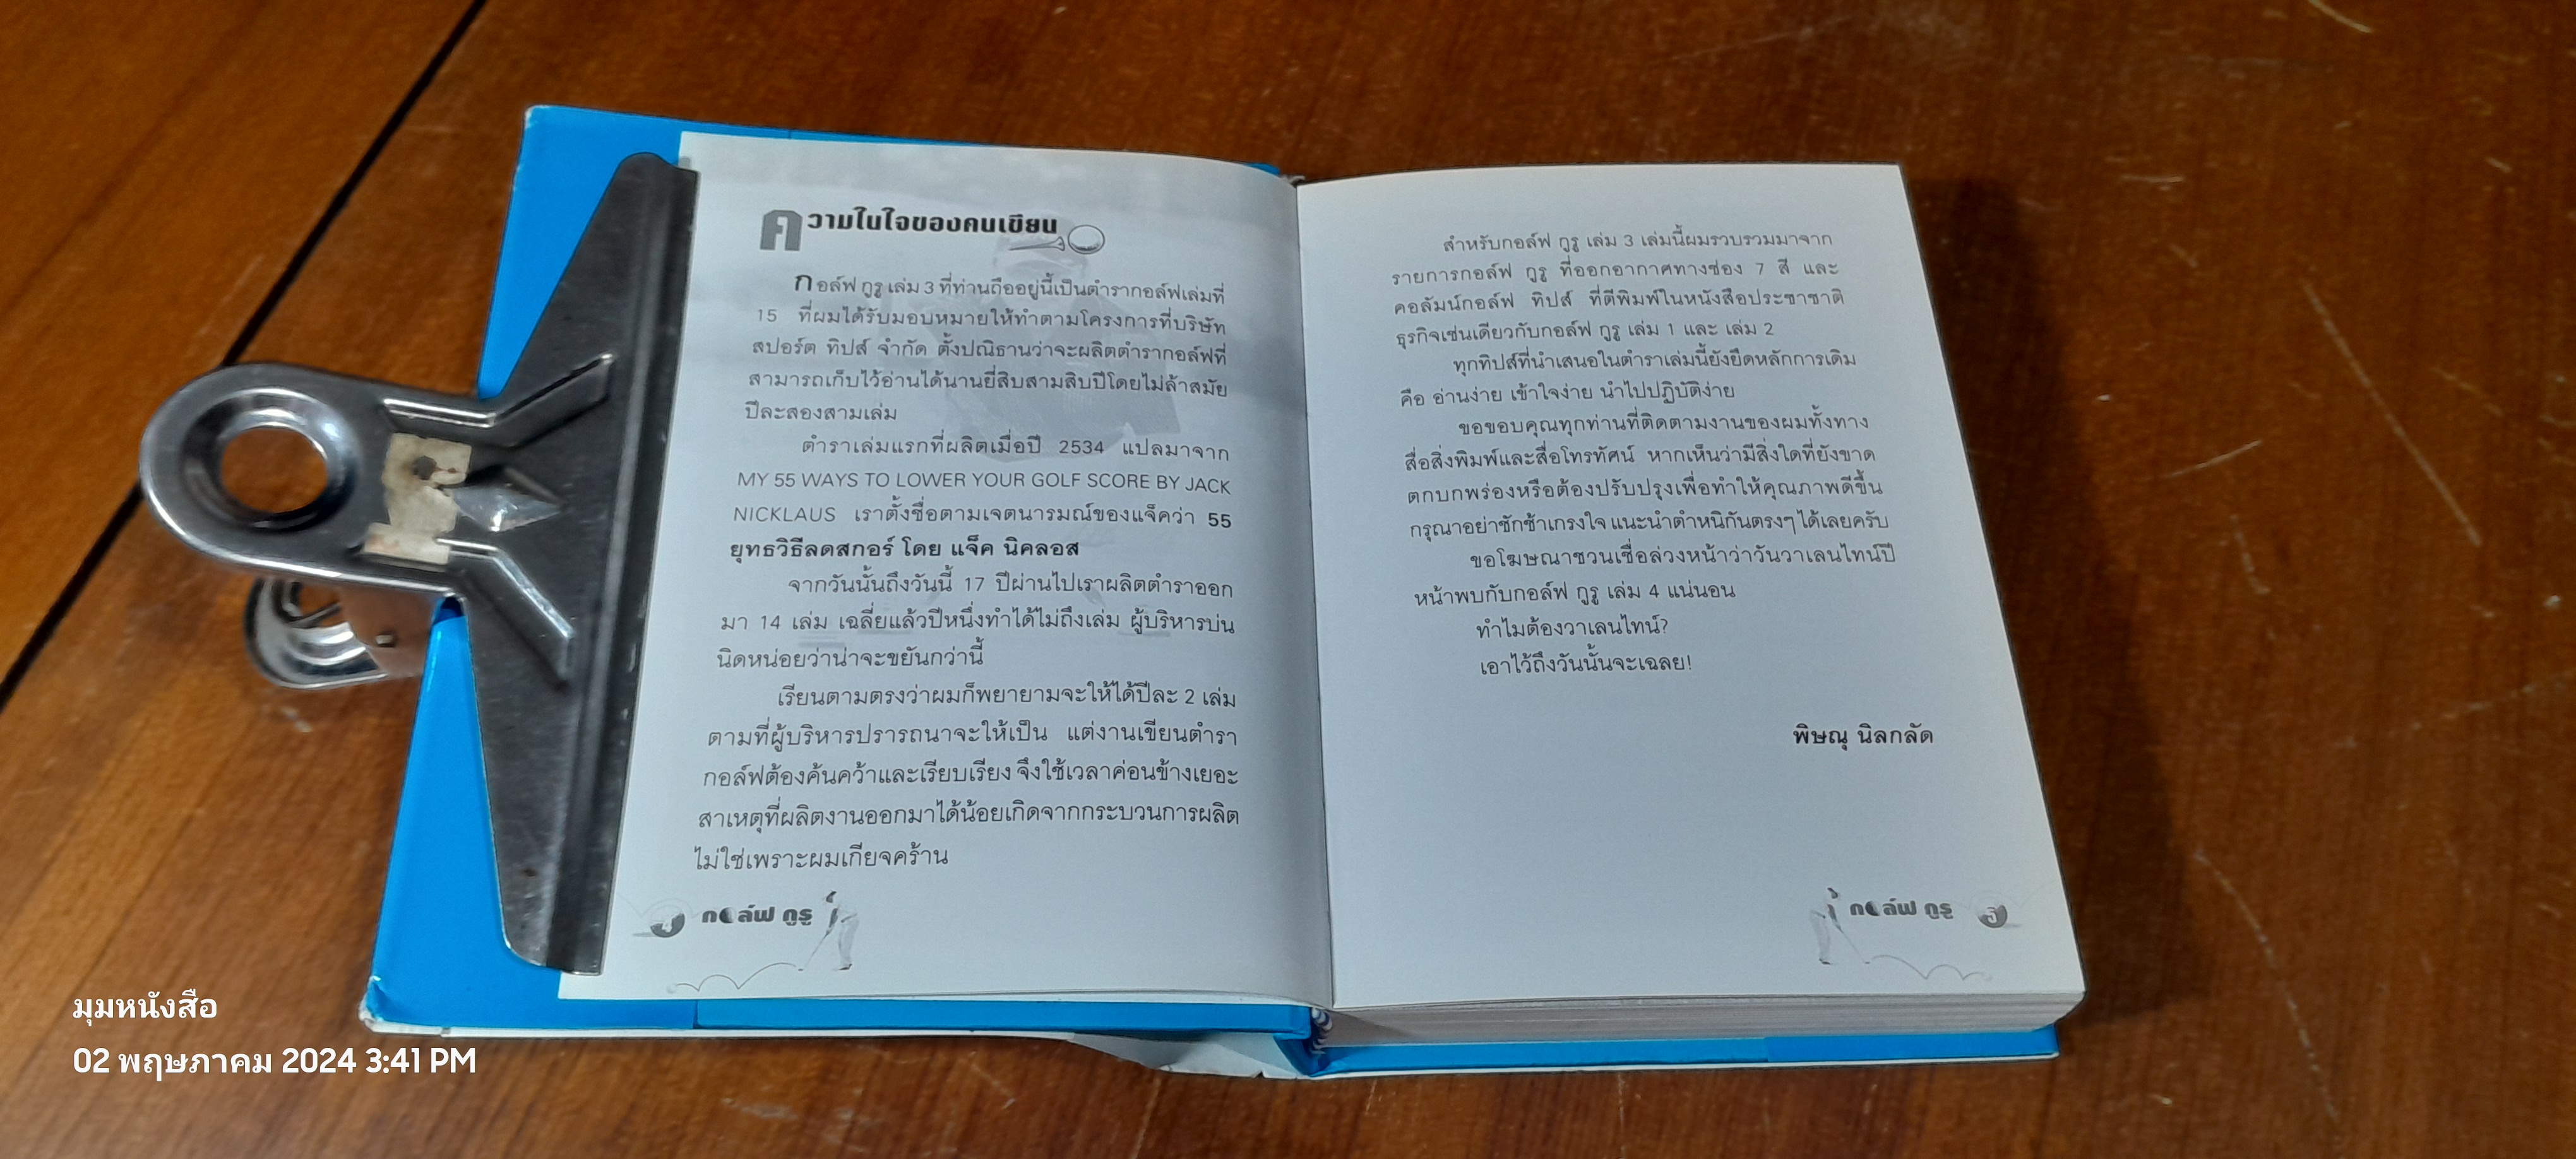 ความในใจของคนเขียน
กอล์ฟ กูรู เล่ม 3 ที่ท่านถืออยู่นี้เป็นตำรากอล์ฟเล่มที่
15 ที่ผมได้รับมอบหมายให้ทำตามโครงการที่บริษัท
สปอร์ต ทิปส์ จำกัด ตั้งปณิธานว่าจะผลิตตำรากอล์ฟที่
สามารถเก็บไว้อ่านได้นานยี่สิบสามสิบปีโดยไม่ล้าสมัย
ปีละสองสามเล่ม
ตำราเล่มแรกที่ผลิตเมื่อปี 2534 แปลมาจาก
MY 55 WAYS TO LOWER YOUR GOLF SCORE BY JACK
NICKLAUS เราตั้งชื่อตามเจตนารมณ์ของแจ็คว่า 55
ยุทธวิธีลดสกอร์ โดย แจ็ค นิคลอส
จากวันนั้นถึงวันนี้ 17 ปีผ่านไปเราผลิตตำราออก
มา 14 เล่ม เฉลี่ยแล้วปีหนึ่งทำได้ไม่ถึงเล่ม ผู้บริหารบ่น
นิดหน่อยว่าน่าจะขยันกว่านี้
เรียนตามตรงว่าผมก็พยายามจะให้ได้ปีละ 2 เล่ม
ตามที่ผู้บริหารปรารถนาจะให้เป็น แต่งานเขียนตำรา
กอล์ฟต้องค้นคว้าและเรียบเรียง จึงใช้เวลาค่อนข้างเยอะ
สาเหตุที่ผลิตงานออกมาได้น้อยเกิดจากกระบวนการผลิต
ไม่ใช่เพราะผมเกียจคร้าน
4 กอล์ฟ กูรู
สำหรับกอล์ฟ กูรู เล่ม 3 เล่มนี้ผมรวบรวมมาจาก
รายการกอล์ฟ กูรู ที่ออกอากาศทางช่อง 7 สี และ
คอลัมน์กอล์ฟ ทิปส์ ที่ตีพิมพ์ในหนังสือประชาชาติ
ธุรกิจเช่นเดียวกับกอล์ฟ กูรู เล่ม 1 และ เล่ม 2
ทุกทิปส์ที่นำเสนอในตำราเล่มนี้ยังยึดหลักการเดิม
คือ อ่านง่าย เข้าใจง่าย นำไปปฏิบัติง่าย
ขอขอบคุณทุกท่านที่ติดตามงานของผมทั้งทาง
สื่อสิ่งพิมพ์และสื่อโทรทัศน์ หากเห็นว่ามีสิ่งใดที่ยังขาด
ตกบกพร่องหรือต้องปรับปรุงเพื่อทำให้คุณภาพดีขึ้น
กรุณาอย่าชักช้าเกรงใจ แนะนำตำหนิกันตรงๆ ได้เลยครับ
ขอโฆษณาชวนเชื่อล่วงหน้าว่าวันวาเลนไทน์ปี
หน้าพบกับกอล์ฟ กูรู เล่ม 4 แน่นอน
ทำไมต้องวาเลนไทน์?
เอาไว้ถึงวันนั้นจะเฉลย!
พิษณุ นิลกลัด
กอล์ฟ กูรู 5
มุมหนังสือ
02 พฤษภาคม 2024 3:41 PM